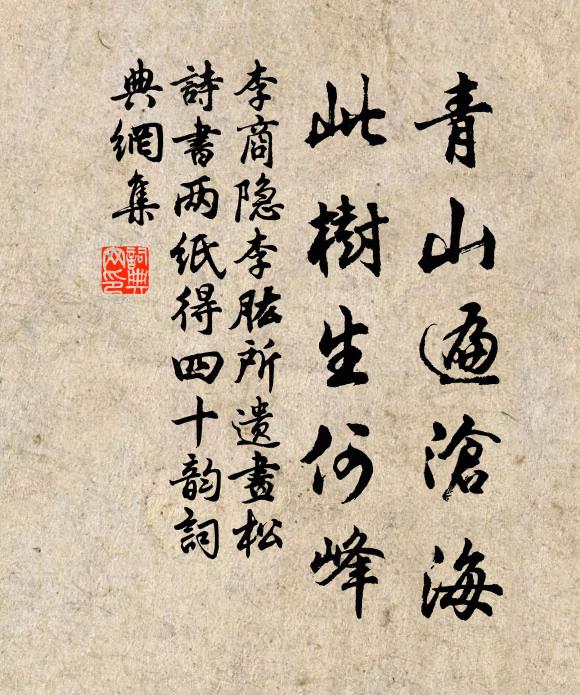 青山遍滄海
此樹生何峰
李商隐李肱所遺畫松
詩書两纸得四十韵詞
典網集
詞典